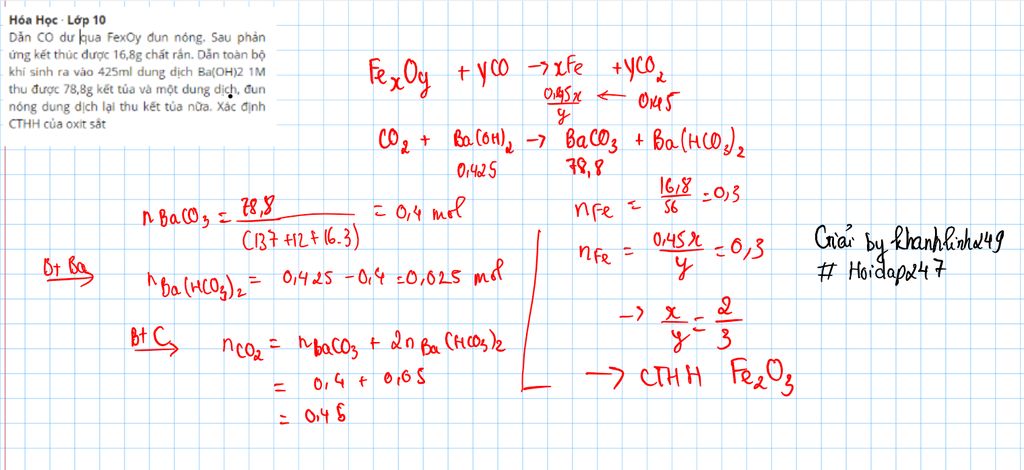 Hóa Học · Lớp 10
Dẫn CO dư qua FexOy đun nóng. Sau phản
ứng kết thúc được 16,8g chất rắn. Dẫn toàn bộ
khí sinh ra vào 425ml dung dịch Ba(OH)2 1M
thu được 78,8g kết tủa và một dung dịch, đun
nóng dung dịch lại thu kết tủa nữa. Xác định
CTHH của oxit sắt
FexOy + yCO → xFe + yCO2
0,45x/y ← 0,45
CO2 + Ba(OH)2 → BaCO3 + Ba(HCO3)2
0,425 78,8
nBaCO3 = 78,8/(137+12+16.3) = 0,4 mol
Bt Ba → nBa(HCO3)2 = 0,425 - 0,4 = 0,025 mol
Bt C → nCO2 = nBaCO3 + 2nBa(HCO3)2
= 0,4 + 0,05
= 0,45
nFe = 16,8/56 = 0,3
nFe = 0,45x/y = 0,3
→ x/y = 2/3
→ CTHH Fe2O3
Giải by khanhlinh249
# Hoidap247